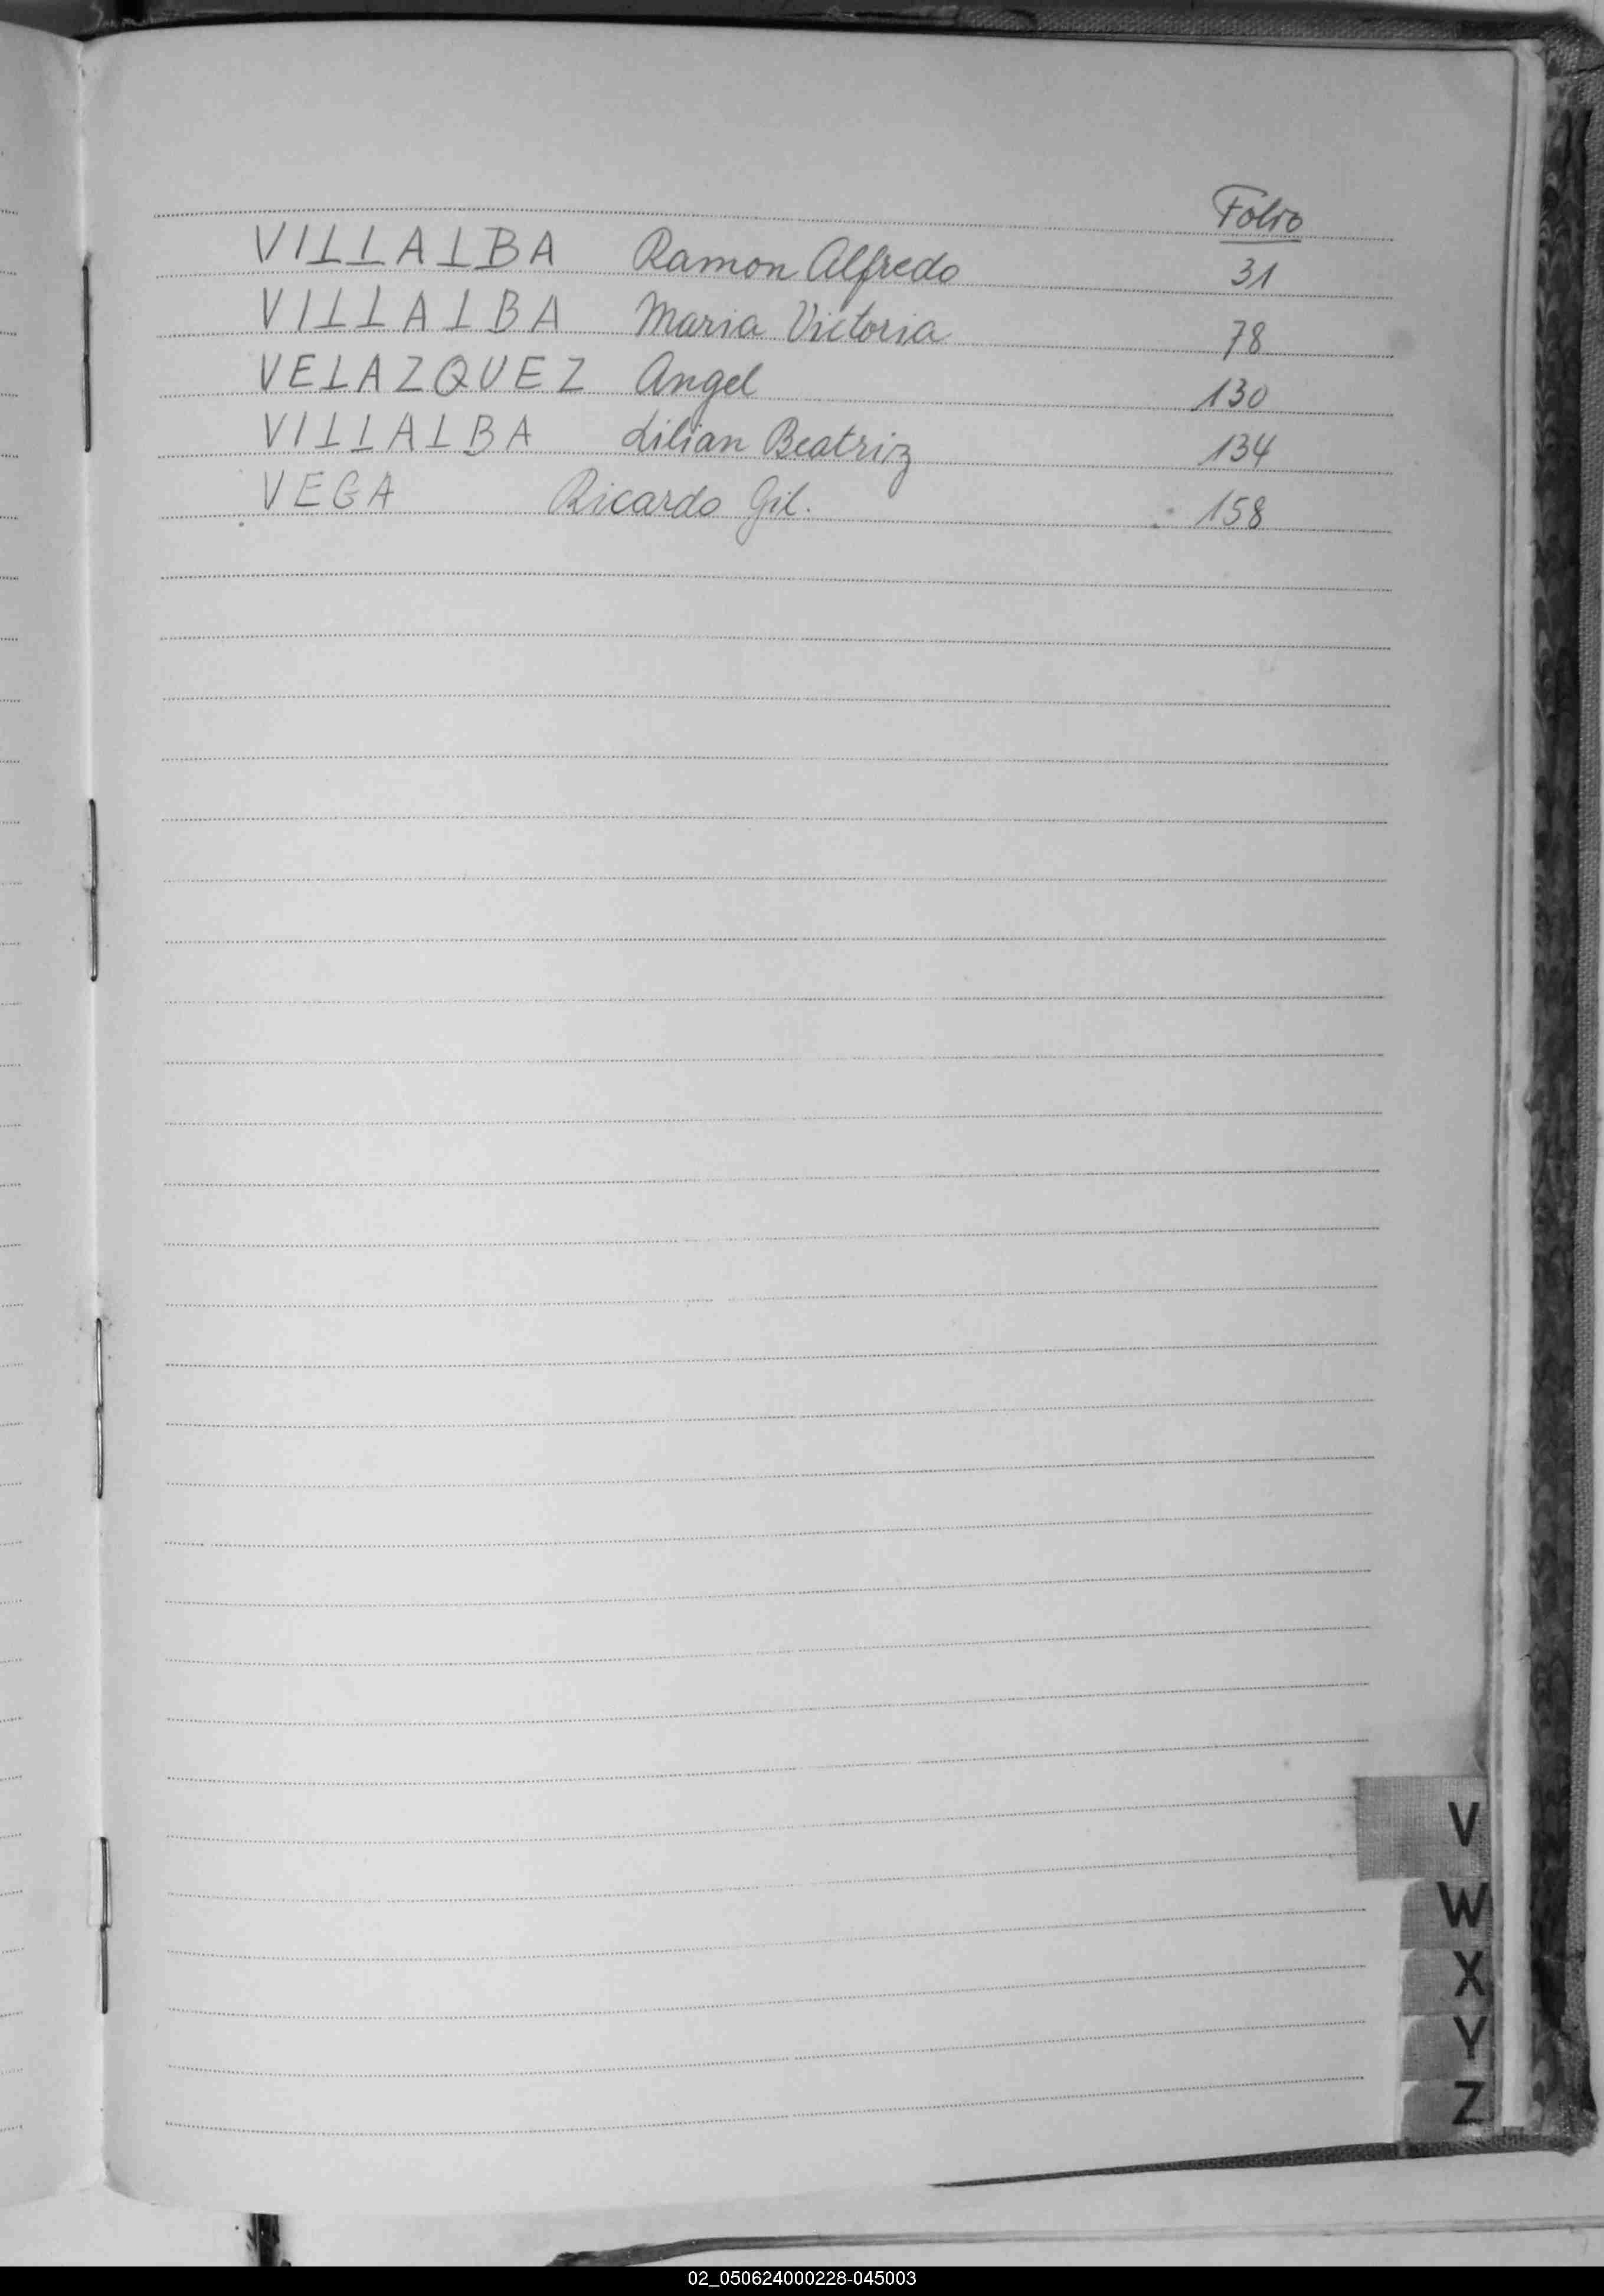 Folio
VILLALBA Ramon Alfredo 31
VILLALBA Maria Victoria 78
VELAZQUEZ Angel 130
VILLALBA Lilian Beatriz 134
VEGA Ricardo Gil. 158
V
W
X
Y
Z
02_050624000228-045003